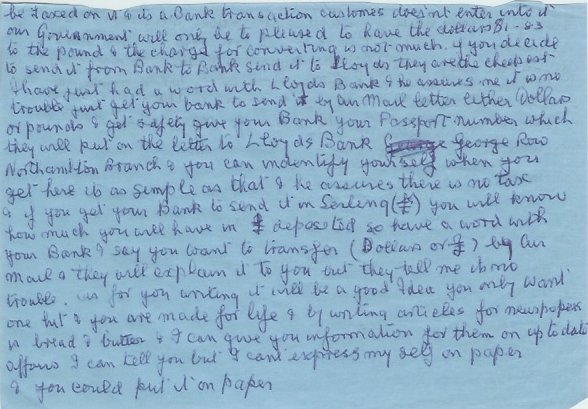 be Taxed on it & its a Bank transaction customes doesint enter into it
our Government will only be to pleased to have the dollars $1-83
to the pound & the charge for converting is not much. if you decide
to send it from Bank to Bank send it to Lloyds they are the cheapest
I have just had a word with Lloyds Bank & he assures me it is no
trouble just get your bank to send it by Air Mail letter either Dollars
or pounds & get safety give your Bank your Passport number which
they will put on the letter to Lloyds Bank George George Row
Northampton Branch & you can indentify yourself when you
get here its as simple as that & he assures there is no tax
& if you get your Bank to send it in Serling (£) you will know
how much you will have in £ deposited so have a word with
your Bank & say you want to transfer (Dollars or £) by Air
Mail & they will explain it to you but they tell me its no
trouble. as for you writing it will be a good Idea you only want
one hit & you are made for life & by writing articles for newspapers
is bread & butter & I can give you information for them on up to date
affairs I can tell you but I cant express my self on paper
& you could put it on paper